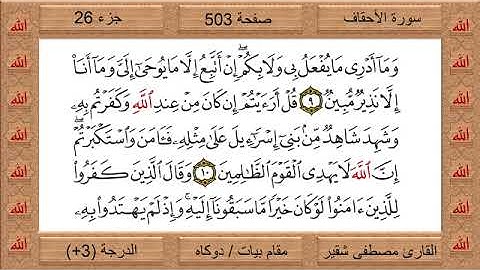 سورة الأحقاف صفحة 503 جزء 26
وَمَآ أَدْرِى مَا يُفْعَلُ بِى وَلَا بِكُمْ ۖ إِنْ أَتَّبِعُ إِلَّا مَا يُوحَىٰٓ إِلَىَّ وَمَآ أَنَا۠
إِلَّا نَذِيرٌ مُّبِينٌ ٩ قُلْ أَرَءَيْتُمْ إِن كَانَ مِنْ عِندِ ٱللَّهِ وَكَفَرْتُم بِهِۦ
وَشَهِدَ شَاهِدٌ مِّنۢ بَنِىٓ إِسْرَٰٓءِيلَ عَلَىٰ مِثْلِهِۦ فَـَٔامَنَ وَٱسْتَكْبَرْتُمْ ۖ
إِنَّ ٱللَّهَ لَا يَهْدِى ٱلْقَوْمَ ٱلظَّـٰلِمِينَ ١٠ وَقَالَ ٱلَّذِينَ كَفَرُوا۟
لِلَّذِينَ ءَامَنُوا۟ لَوْ كَانَ خَيْرًا مَّا سَبَقُونَآ إِلَيْهِ ۚ وَإِذْ لَمْ يَهْتَدُوا۟ بِهِۦ
القارئ مصطفى شقير مقام بيات / دوكاه الدرجة (3+)
الله
الله
الله
الله
الله
الله
الله
الله
الله
الله
الله
الله
الله
الله